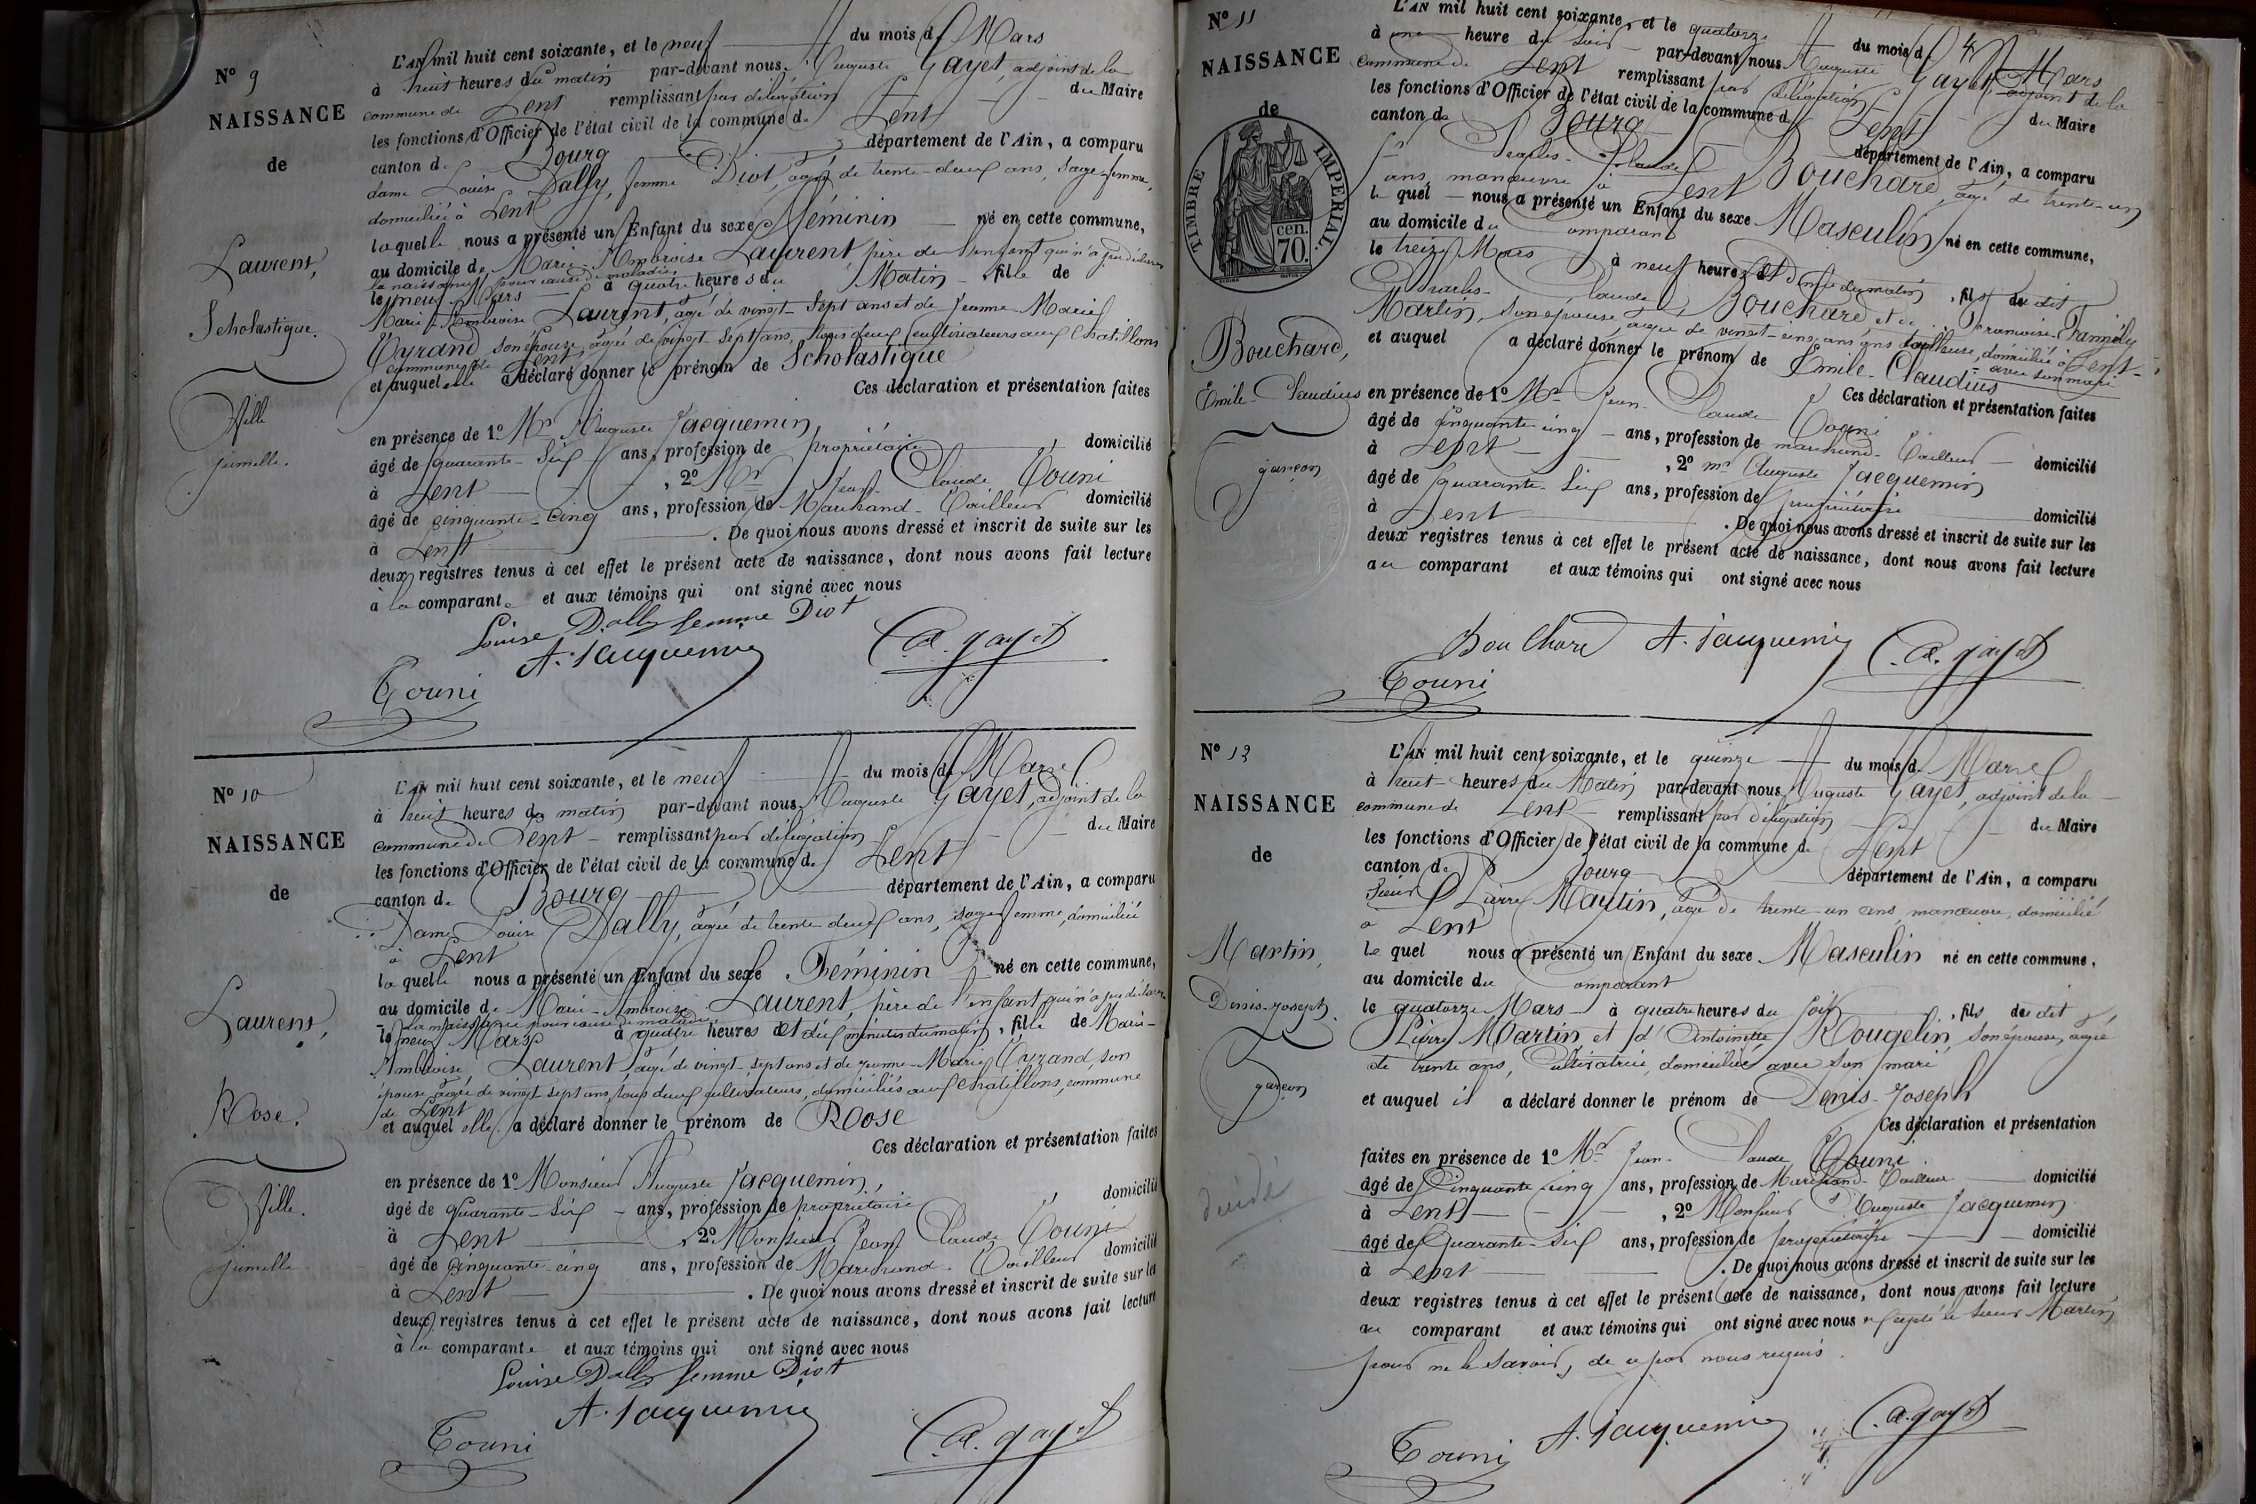 N° 9
NAISSANCE
de
Laurent,
Scholastique.
Fille
jumelle.
L'AN mil huit cent soixante, et le neuf du mois de Mars
à huit heures du matin par-devant nous Auguste Gayet, adjoint de la
commune de Lent remplissant par délégation du Maire
les fonctions d'Officier de l'état civil de la commune de Lent
canton de Bourg département de l'Ain, a comparu
dame Louise Dally, femme Diot, âgée de trente-deux ans, sage-femme,
domiciliée à Lent
laquelle nous a présenté un Enfant du sexe Féminin né en cette commune,
au domicile de Marie-Ambroise Laurent, père de l'enfant qui n'a pu déclarer
la naissance pour cause de maladie
le neuf Mars à quatre heures du Matin fille de
Marie-Ambroise Laurent, âgé de vingt-sept ans et de Jeanne Marie
Tyrand, son épouse, âgée de vingt sept ans, tous deux cultivateurs aux Chatillons
commune de Lent
et auquel elle a déclaré donner le prénom de Scholastique
Ces déclaration et présentation faites
en présence de 1° Mr Auguste Jacquemin
âgé de quarante-six ans, profession de propriétaire domicilié
à Lent , 2° Mr Jean-Claude Touni
âgé de cinquante-cinq ans, profession de Marchand-Tailleur domicilié
à Lent . De quoi nous avons dressé et inscrit de suite sur les
deux registres tenus à cet effet le présent acte de naissance, dont nous avons fait lecture
à la comparante et aux témoins qui ont signé avec nous
Louise Dally femme Diot
A. Jacquemin
C. A. Gayet
Touni
N° 10
NAISSANCE
de
Laurent,
Rose.
Fille.
jumelle
L'AN mil huit cent soixante, et le neuf du mois de Mars
à huit heures du matin par-devant nous Auguste Gayet, adjoint de la
commune de Lent remplissant par délégation du Maire
les fonctions d'Officier de l'état civil de la commune de Lent
canton de Bourg département de l'Ain, a comparu
Dame Louise Dally, âgée de trente-deux ans, sage femme, domiciliée
à Lent
laquelle nous a présenté un Enfant du sexe Féminin né en cette commune,
au domicile de Marie-Ambroise Laurent, père de l'enfant qui n'a pu déclarer
la naissance pour cause de maladie
le neuf Mars à quatre heures et dix minutes du matin, fille de Marie-
Ambroise Laurent âgé de vingt-sept ans et de Jeanne-Marie Tyrand, son
épouse, âgée de vingt sept ans, tous deux cultivateurs, domiciliés aux Chatillons, commune
de Lent
et auquel elle a déclaré donner le prénom de Rose
Ces déclaration et présentation faites
en présence de 1° Monsieur Auguste Jacquemin,
âgé de quarante-six ans, profession de propriétaire domicilié
à Lent , 2° Monsieur Jean Claude Touni
âgé de cinquante-cinq ans, profession de Marchand-Tailleur domicilié
à Lent . De quoi nous avons dressé et inscrit de suite sur les
deux registres tenus à cet effet le présent acte de naissance, dont nous avons fait lecture
à la comparante et aux témoins qui ont signé avec nous
Louise Dally femme Diot
A. Jacquemin
Touni
C. A. Gayet
N° 11
NAISSANCE
de
TIMBRE IMPERIAL.
cen. 70.
Bouchard,
Emile-Claudius
garçon
4
L'AN mil huit cent soixante, et le quatorze du mois de Mars
à une heure du soir par-devant nous Auguste Gayet, adjoint de la
commune de Lent remplissant par délégation du Maire
les fonctions d'Officier de l'état civil de la commune de Lent
canton de Bourg département de l'Ain, a comparu
Sr Charles-Claude Bouchard, âgé de trente-un
ans, manœuvre à Lent
lequel nous a présenté un Enfant du sexe Masculin né en cette commune,
au domicile du comparant
le treize Mars à neuf heures et demie du matin, fils du dit
Charles-Claude Bouchard, et de Françoise-Fannély
Martin, son épouse, âgée de vingt-cinq ans, tailleuse, domiciliée à Lent
avec son mari
et auquel a déclaré donner le prénom de Emile-Claudius
Ces déclaration et présentation faites
en présence de 1° Mr Jean-Claude Touni
âgé de cinquante-cinq ans, profession de marchand-Tailleur domicilié
à Lent , 2° mr Auguste Jacquemin
âgé de quarante-six ans, profession de propriétaire domicilié
à Lent . De quoi nous avons dressé et inscrit de suite sur les
deux registres tenus à cet effet le présent acte de naissance, dont nous avons fait lecture
au comparant et aux témoins qui ont signé avec nous
Bouchard A. Jacquemin C. A. Gayet
Touni
N° 12
NAISSANCE
de
Martin,
Denis-Joseph.
garçon
L'AN mil huit cent soixante, et le quinze du mois de Mars
à huit heures du Matin par-devant nous Auguste Gayet, adjoint de la
commune de Lent remplissant par délégation du Maire
les fonctions d'Officier de l'état civil de la commune de Lent
canton de Bourg département de l'Ain, a comparu
Sieur Pierre Martin, âgé de trente-un ans, manœuvre, domicilié
à Lent
lequel nous a présenté un Enfant du sexe Masculin né en cette commune,
au domicile du comparant
le quatorze Mars à quatre heures du soir, fils du dit
Pierre Martin, et d'Antoinette Rougelin, son épouse, âgée
de trente ans, cultivatrice, domiciliée avec son mari
et auquel il a déclaré donner le prénom de Denis-Joseph
Ces déclaration et présentation
faites en présence de 1° Mr Jean-Claude Touni
âgé de Cinquante-cinq ans, profession de Marchand-Tailleur domicilié
à Lent , 2° Monsieur Auguste Jacquemin
âgé de Quarante-six ans, profession de propriétaire domicilié
à Lent . De quoi nous avons dressé et inscrit de suite sur les
deux registres tenus à cet effet le présent acte de naissance, dont nous avons fait lecture
au comparant et aux témoins qui ont signé avec nous excepté le sieur Martin
pour ne le savoir, de ce par nous requis.
Touni A. Jacquemin C. A. Gayet